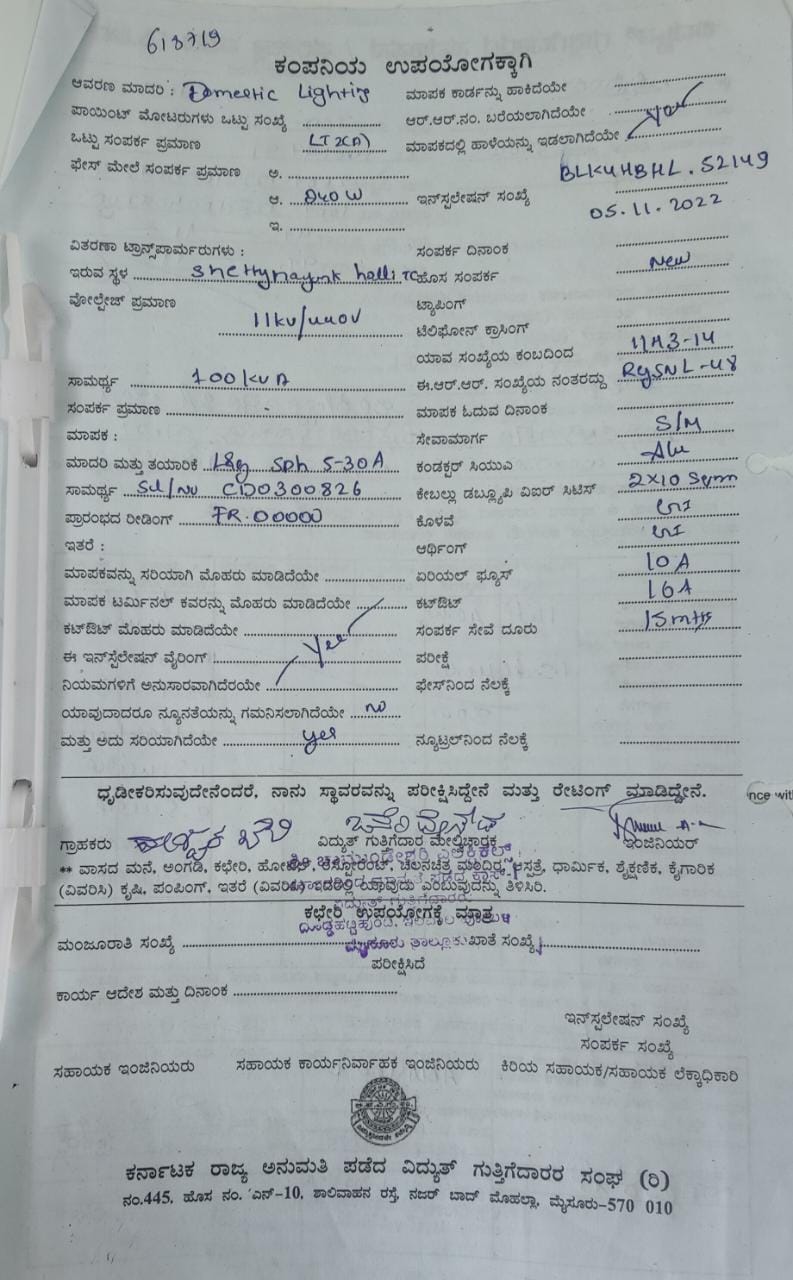 618719
ಕಂಪನಿಯ ಉಪಯೋಗಕ್ಕಾಗಿ
ಆವರಣ ಮಾದರಿ : Domestic Lighting ಮಾಪಕ ಕಾರ್ಡನ್ನು ಹಾಕಿದೆಯೇ
ಪಾಯಿಂಟ್ ಮೋಟರುಗಳು ಒಟ್ಟು ಸಂಖ್ಯೆ ಆರ್.ಆರ್.ನಂ. ಬರೆಯಲಾಗಿದೆಯೇ yes
ಒಟ್ಟು ಸಂಪರ್ಕ ಪ್ರಮಾಣ LT2(A) ಮಾಪಕದಲ್ಲಿ ಹಾಳೆಯನ್ನು ಇಡಲಾಗಿದೆಯೇ
ಫೇಸ್ ಮೇಲೆ ಸಂಪರ್ಕ ಪ್ರಮಾಣ ಅ.
BLK4HBHL.52149
ಆ. 240W ಇನ್‌ಸ್ಟಲೇಷನ್ ಸಂಖ್ಯೆ
05.11.2022
ಇ.
ವಿತರಣಾ ಟ್ರಾನ್ಸ್‌ಪಾರ್ಮರುಗಳು : ಸಂಪರ್ಕ ದಿನಾಂಕ
ಇರುವ ಸ್ಥಳ Shettynayak halli TC ಹೊಸ ಸಂಪರ್ಕ New
ವೋಲ್ಟೇಜ್ ಪ್ರಮಾಣ 11kv/440V ಟ್ಯಾಪಿಂಗ್
ಟೆಲಿಫೋನ್ ಕ್ರಾಸಿಂಗ್
ಯಾವ ಸಂಖ್ಯೆಯ ಕಂಬದಿಂದ 11M3-14
ಸಾಮರ್ಥ್ಯ 100 KVA ಈ.ಆರ್.ಆರ್. ಸಂಖ್ಯೆಯ ನಂತರದ್ದು RYSNL-48
ಸಂಪರ್ಕ ಪ್ರಮಾಣ - ಮಾಪಕ ಓದುವ ದಿನಾಂಕ
ಮಾಪಕ : ಸೇವಾಮಾರ್ಗ S/M
ಮಾದರಿ ಮತ್ತು ತಯಾರಿಕೆ L&g Sph 5-30A ಕಂಡಕ್ಟರ್ ಸಿಯುವಿ Alu
ಸಾಮರ್ಥ್ಯ Sl/No CD0300826 ಕೇಬಲ್ಲು ಡಬ್ಲ್ಯೂಪಿ ವಿಐರ್ ಸಿಟಿಸ್ 2X10 Sqmm
ಪ್ರಾರಂಭದ ರೀಡಿಂಗ್ FR.00000 ಕೊಳವೆ GI
ಇತರೆ : ಆರ್ಥಿಂಗ್ GI
ಮಾಪಕವನ್ನು ಸರಿಯಾಗಿ ಮೊಹರು ಮಾಡಿದೆಯೇ ಏರಿಯಲ್ ಫ್ಯೂಸ್ 10A
ಮಾಪಕ ಟರ್ಮಿನಲ್ ಕವರನ್ನು ಮೊಹರು ಮಾಡಿದೆಯೇ ಕಟ್‌ಔಟ್ 16A
ಕಟ್‌ಔಟ್ ಮೊಹರು ಮಾಡಿದೆಯೇ ಸಂಪರ್ಕ ಸೇವೆ ದೂರು 15mtrs
ಈ ಇನ್‌ಸ್ಪೆಲೇಷನ್ ವೈರಿಂಗ್ yes ಪರೀಕ್ಷೆ
ನಿಯಮಗಳಿಗೆ ಅನುಸಾರವಾಗಿದೆರೆಯೇ ಫೇಸ್‌ನಿಂದ ನೆಲಕ್ಕೆ
ಯಾವುದಾದರೂ ನ್ಯೂನತೆಯನ್ನು ಗಮನಿಸಲಾಗಿದೆಯೇ no
ಮತ್ತು ಅದು ಸರಿಯಾಗಿದೆಯೇ yes ನ್ಯೂಟ್ರಲ್‌ನಿಂದ ನೆಲಕ್ಕೆ
ಧೃಡೀಕರಿಸುವುದೇನೆಂದರೆ, ನಾನು ಸ್ಥಾವರವನ್ನು ಪರೀಕ್ಷಿಸಿದ್ದೇನೆ ಮತ್ತು ರೇಟಿಂಗ್ ಮಾಡಿದ್ದೇನೆ.
nce wit
ಗ್ರಾಹಕರು ವಿದ್ಯುತ್ ಗುತ್ತಿಗೆದಾರ ಮೇಲ್ವಿಚಾರಕ ಇಂಜಿನಿಯರ್
** ವಾಸದ ಮನೆ, ಅಂಗಡಿ, ಕಛೇರಿ, ಹೋಟೆಲ್, ರೆಸ್ಟೋರೆಂಟ್, ಚಲನಚಿತ್ರ ಮಂದಿರ, ಆಸ್ಪತ್ರೆ, ಧಾರ್ಮಿಕ, ಶೈಕ್ಷಣಿಕ, ಕೈಗಾರಿಕ
(ವಿವರಿಸಿ) ಕೃಷಿ, ಪಂಪಿಂಗ್, ಇತರೆ (ವಿವರಿಸಿ) ಇದರಲ್ಲಿ ಯಾವುದು ಎಂಬುವುದನ್ನು ತಿಳಿಸಿರಿ.
ವಿದ್ಯುತ್ ಗುತ್ತಿಗೆದಾರರು
ಕಛೇರಿ ಉಪಯೋಗಕ್ಕೆ ಮಾತ್ರ
ಮಂಜೂರಾತಿ ಸಂಖ್ಯೆ ಮೈಸೂರು ತಾಲ್ಲೂಕು ಖಾತೆ ಸಂಖ್ಯೆ
ಪರೀಕ್ಷಿಸಿದೆ
ಕಾರ್ಯ ಆದೇಶ ಮತ್ತು ದಿನಾಂಕ
ಇನ್‌ಸ್ಪಲೇಷನ್ ಸಂಖ್ಯೆ
ಸಂಪರ್ಕ ಸಂಖ್ಯೆ
ಸಹಾಯಕ ಇಂಜಿನಿಯರು ಸಹಾಯಕ ಕಾರ್ಯನಿರ್ವಾಹಕ ಇಂಜಿನಿಯರು ಕಿರಿಯ ಸಹಾಯಕ/ಸಹಾಯಕ ಲೆಕ್ಕಾಧಿಕಾರಿ
ಕರ್ನಾಟಕ ರಾಜ್ಯ ಅನುಮತಿ ಪಡೆದ ವಿದ್ಯುತ್ ಗುತ್ತಿಗೆದಾರರ ಸಂಘ (ರಿ)
ನಂ.445, ಹೊಸ ನಂ. ಎನ್-10, ಶಾಲಿವಾಹನ ರಸ್ತೆ, ನಜರ್ ಬಾದ್ ಮೊಹಲ್ಲಾ, ಮೈಸೂರು-570 010